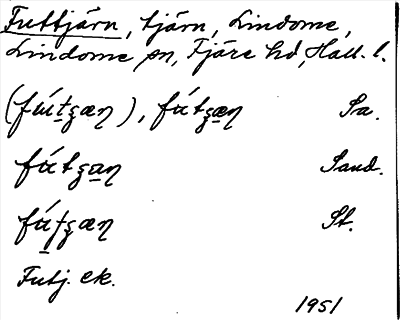 Futtjärn, tjärn, Lindome,
Lindome sn, Fjäre hd, Hall. l.
(fútʒæɳ), fútʒæɳ Sa.
fútʒaɳ Sand.
fútʒæɳ St.
Futj. ek.
1951